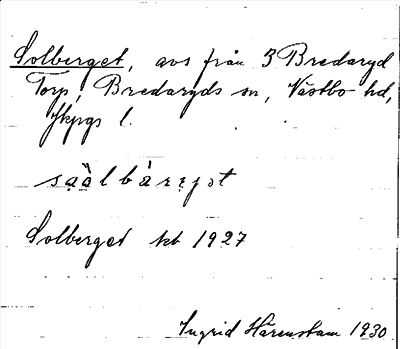 Solberget, avs från 3 Bredaryd
Torp, Bredaryds sn, Västbo hd,
Jkpgs l.
Solberget kb 1927
Ingrid Härenstam 1930